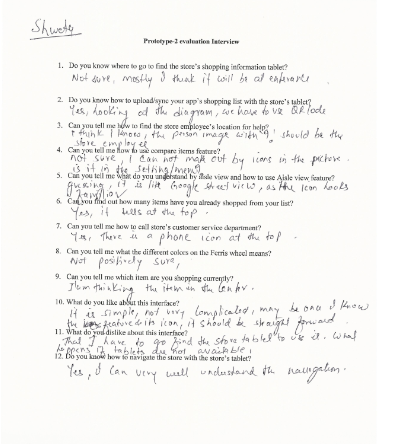 Shweta
Prototype-2 evaluation Interview
1. Do you know where to go to find the store's shopping information tablet?
Not sure, mostly I think it will be at entrance
2. Do you know how to upload/sync your app's shopping list with the store's tablet?
Yes, looking at the diagram, we have to use QR code
3. Can you tell me how to find the store employee's location for help?
I think I know, the person image with '?' should be the
store employee
4. Can you tell me how to use compare items feature?
not sure, I can not make out by icons in the picture.
is it in the setting/menu
5. Can you tell me what do you understand by aisle view and how to use Aisle view feature?
Guessing, it is like Google street view, as the icon looks
familiar
6. Can you find out how many items have you already shopped from your list?
Yes, it tells at the top.
7. Can you tell me how to call store's customer service department?
Yes, There is a phone icon at the top.
8. Can you tell me what the different colors on the Ferris wheel means?
Not positively sure,
9. Can you tell me which item are you shopping currently?
I am thinking the item in the center.
10. What do you like about this interface?
It is simple, not very complicated, may be once I know
the feature & its icon, it should be straight forward.
11. What do you dislike about this interface?
That I have to go find the store tablet to use it. What
happens if tablets are not available!
12. Do you know how to navigate the store with the store's tablet?
Yes, I can very well understand the navigation.